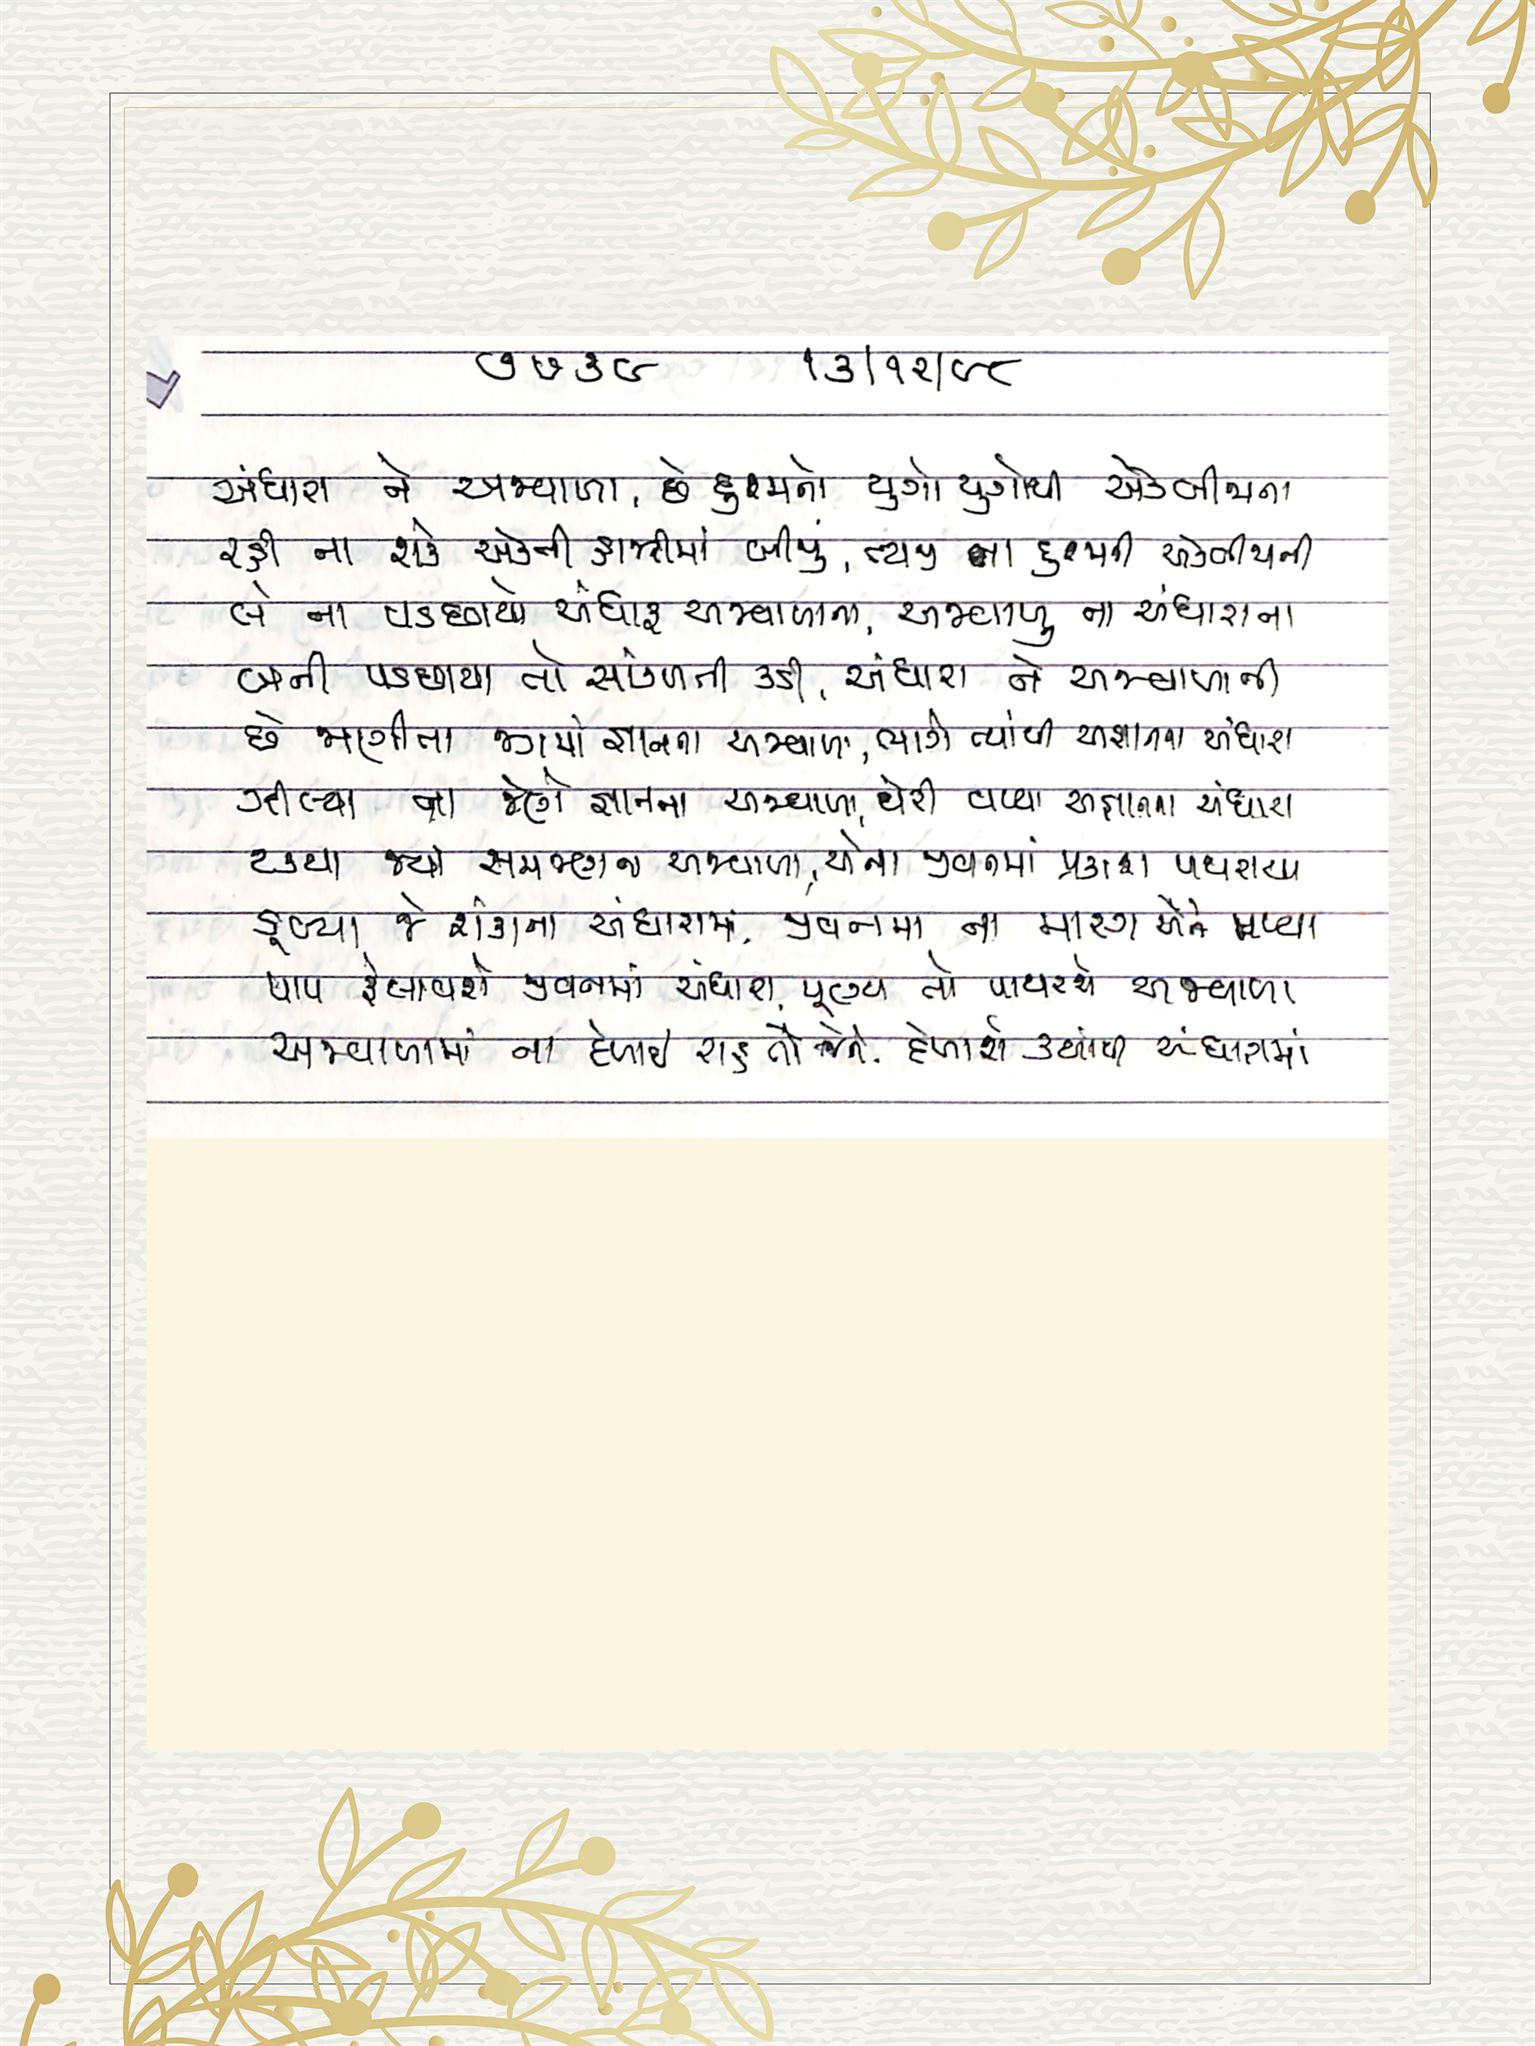 ૭૭૩૯ ૧૩/૧૨/૯૮
અંધારા ને અજવાળા, છે દુશ્મનો યુગો યુગોથી એકબીજાના
રહી ના શકે એકની હાજરીમાં બીજું, ત્યજી ના દુશ્મની એકબીજાની
બે ના પડછાયો અંધારૂ અજવાળાના, અજવાળુ ના અંધારાના
બંનેની પડછાયા તો સાંકળની કડી, અંધારા ને અજવાળાની
છે જાણીતા જગમાં જ્ઞાનના અજવાળા, ભાગે ત્યાંથી અજ્ઞાનના અંધારા
ઝીલ્યા ના જેણે જ્ઞાનના અજવાળા, ઘેરી વળ્યા અજ્ઞાનના અંધારા
ટક્યા જ્યાં સમજણના અજવાળા, એના જીવનમાં પ્રકાશ પથરાયા
ડૂબ્યા જે શંકાના અંધારામાં, જીવનમાં ના મારગ એને મળ્યા
પાપ ફેલાવશે જીવનમાં અંધારા, પૂણ્ય તો પાથરશે અજવાળા
અજવાળામાં ના દેખાઈ શક્યું તો જેને, દેખાશે ક્યાંથી અંધારામાં